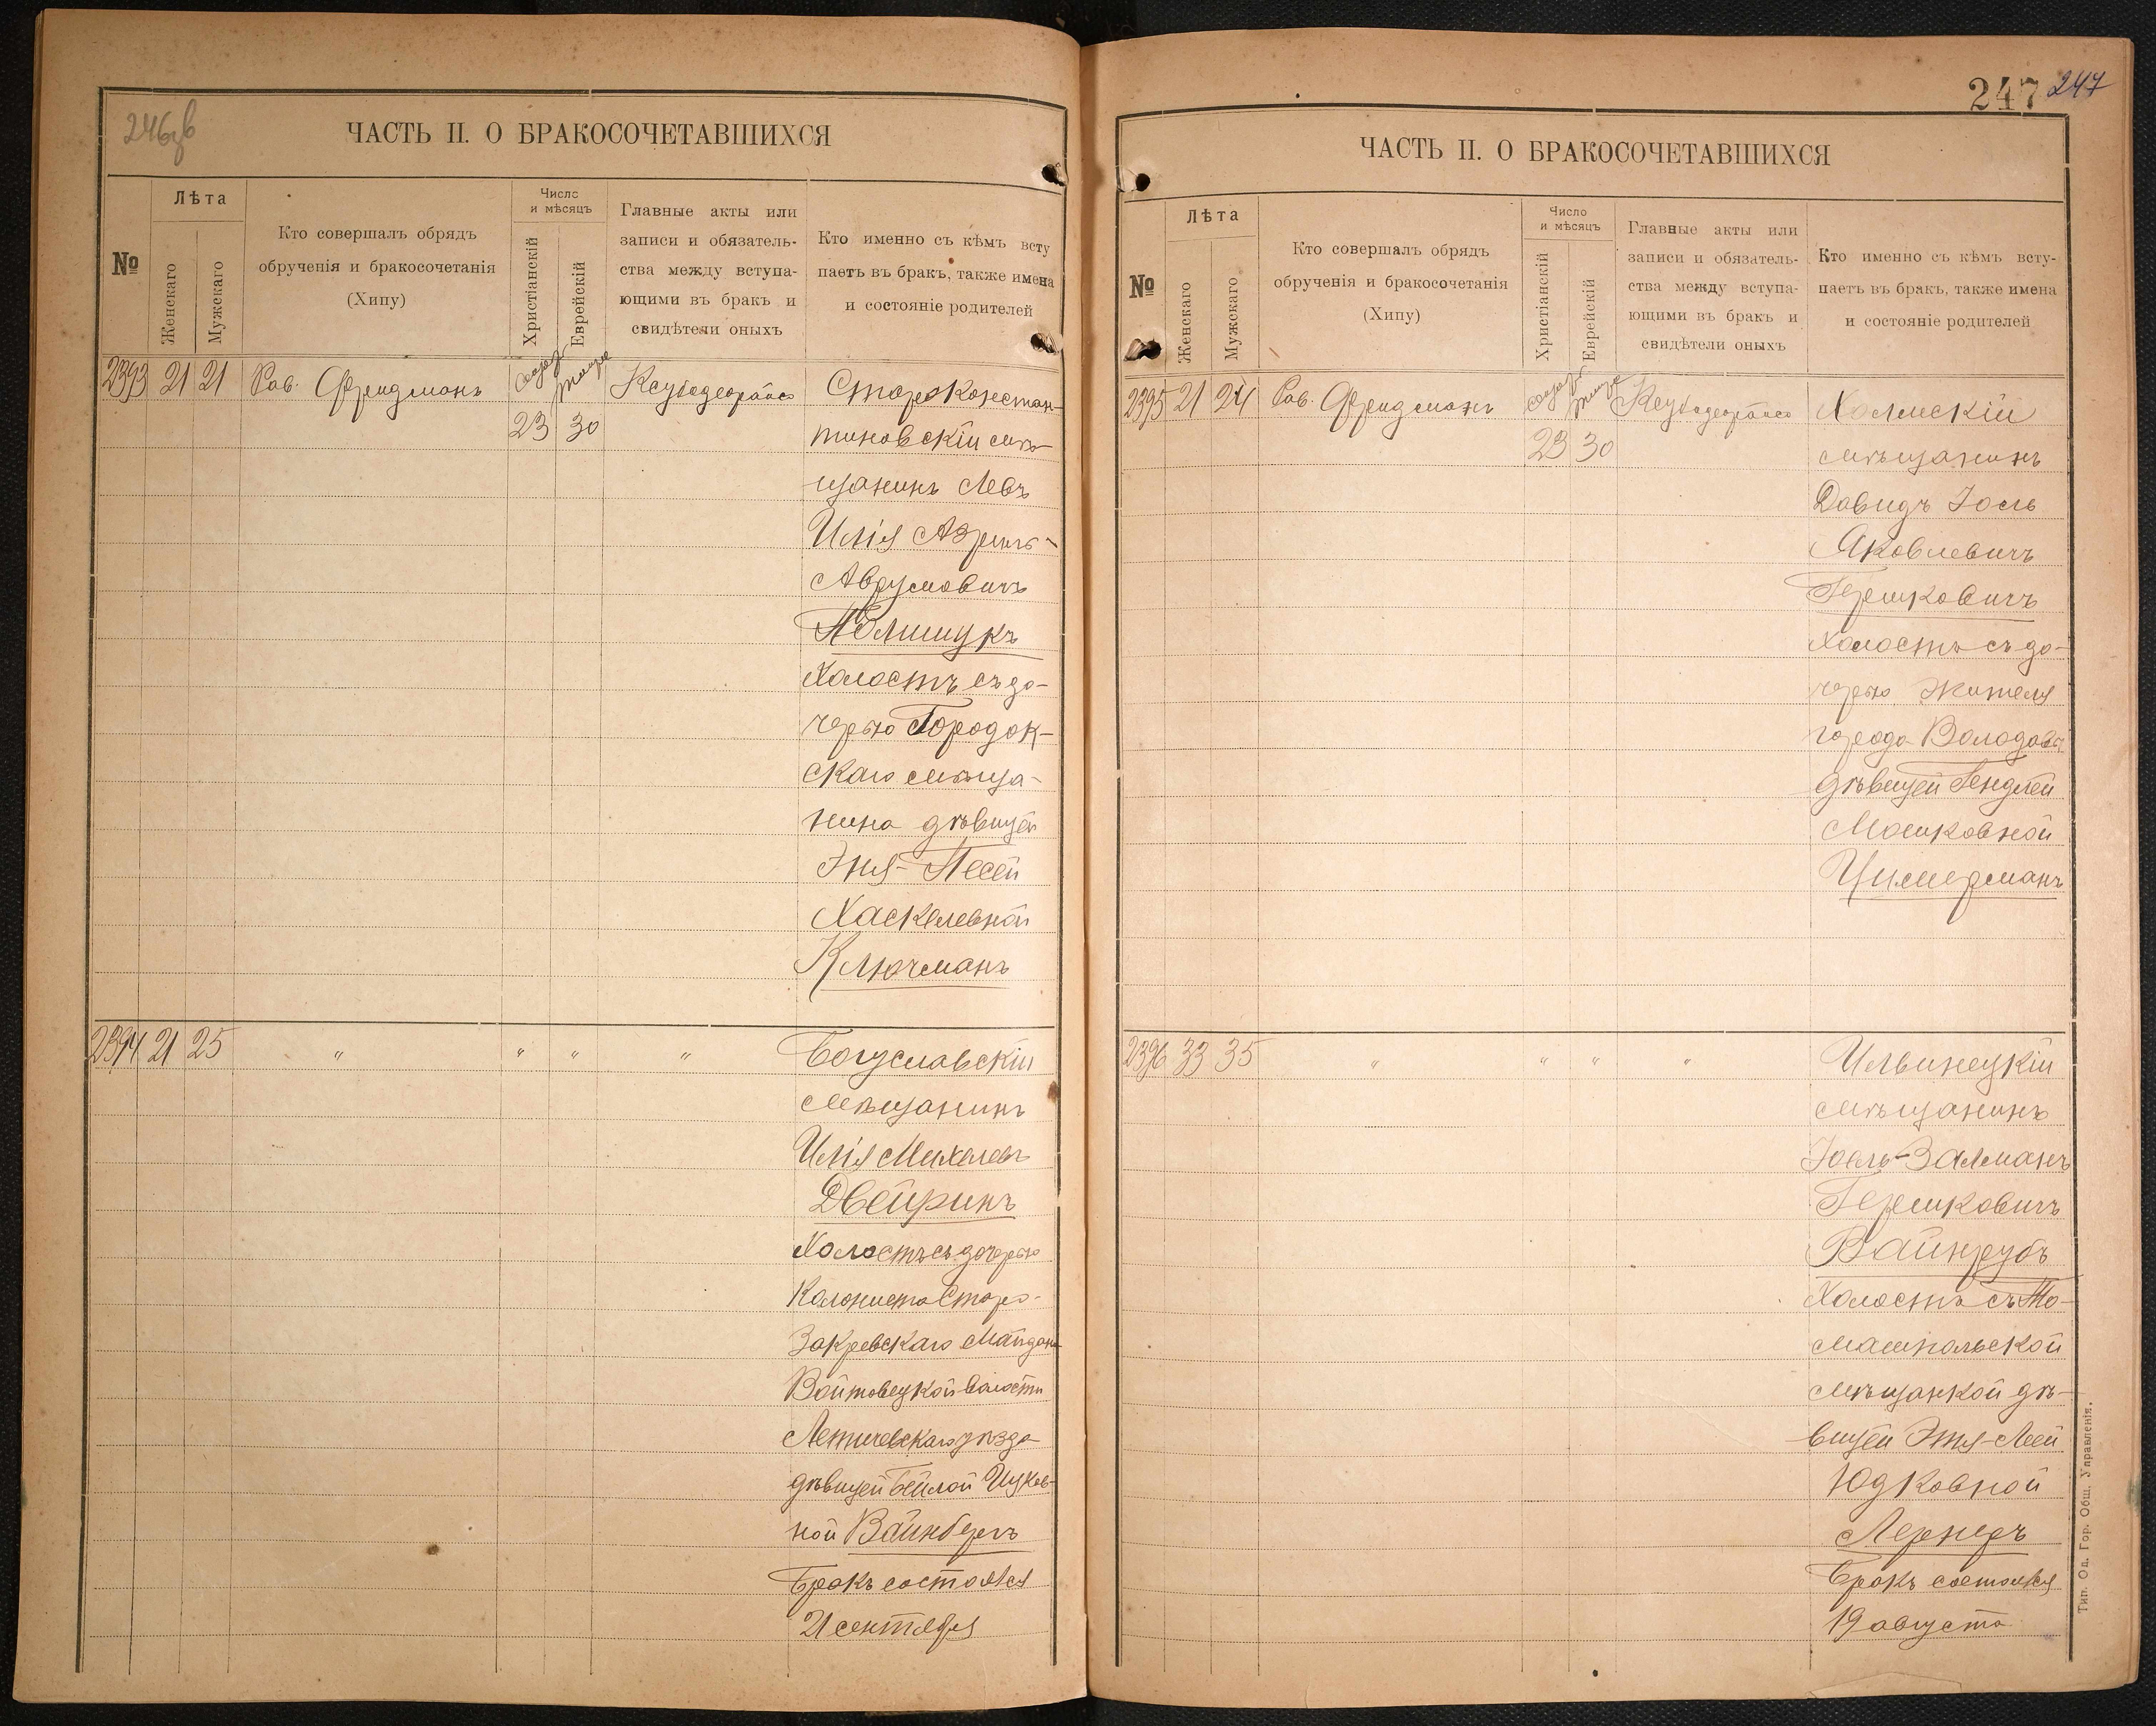 246об
ЧАСТЬ II. О БРАКОСОЧЕТАВШИХСЯ
№
Лѣта
Женскаго
Мужскаго
Кто совершалъ обрядъ
обрученія и бракосочетанія
(Хипу)
Число
и мѣсяцъ
Христіанскій
Еврейскій
Главные акты или
записи и обязатель-
ства между вступа-
ющими въ бракъ и
свидѣтели оныхъ
Кто именно съ кѣмъ всту
паетъ въ бракъ, также имена
и состояніе родителей
2393 21 21 Рав. Фридманъ 23 30
Староконстан-
тиновскій мѣ-
щанинъ Левъ
Илія Азрилъ-
Аврумовичъ
Полищукъ
Холостъ съ до-
черью Городок-
скаго мѣща-
нина дѣвицей
Эня-Песей
Хаскелевной
Ключманъ
2394 21 25 " " " "
Богуславскій
мѣщанинъ
Илія Михелевъ
Двейринъ
Холостъ съ дочерью
Колониста Старо-
Закревскаго Майдана
Войтовецкой волости
Летичевскаго уѣзда
дѣвицей Бейлой Ицков-
ной Вайнбергъ
Бракъ состоялся
21 сентября
247 247
ЧАСТЬ II. О БРАКОСОЧЕТАВШИХСЯ
№
Лѣта
Женскаго
Мужскаго
Кто совершалъ обрядъ
обрученія и бракосочетанія
(Хипу)
Число
и мѣсяцъ
Христіанскій
Еврейскій
Главные акты или
записи и обязатель-
ства между вступа-
ющими въ бракъ и
свидѣтели оныхъ
Кто именно съ кѣмъ всту-
паетъ въ бракъ, также имена
и состояніе родителей
2395 21 24 Рав. Фридманъ 23 30
Холмскій
мѣщанинъ
Давидъ Іось
Яковлевичъ
Гершковичъ
Холостъ съ до-
черью жителя
города Володавы
дѣвицей Гендлей
Мошковной
Цимерманъ
2396 33 35 " " " "
Ильинецкій
мѣщанинъ
Іоель-Залманъ
Гершковичъ
Вайнрубъ
Холостъ съ То-
машпольской
мѣщанкой дѣ-
вицей Этя-Леей
Юдковной
Лернеръ
Бракъ состоялся
19 августа
Тип. Од. Гор. Общ. Управленія.